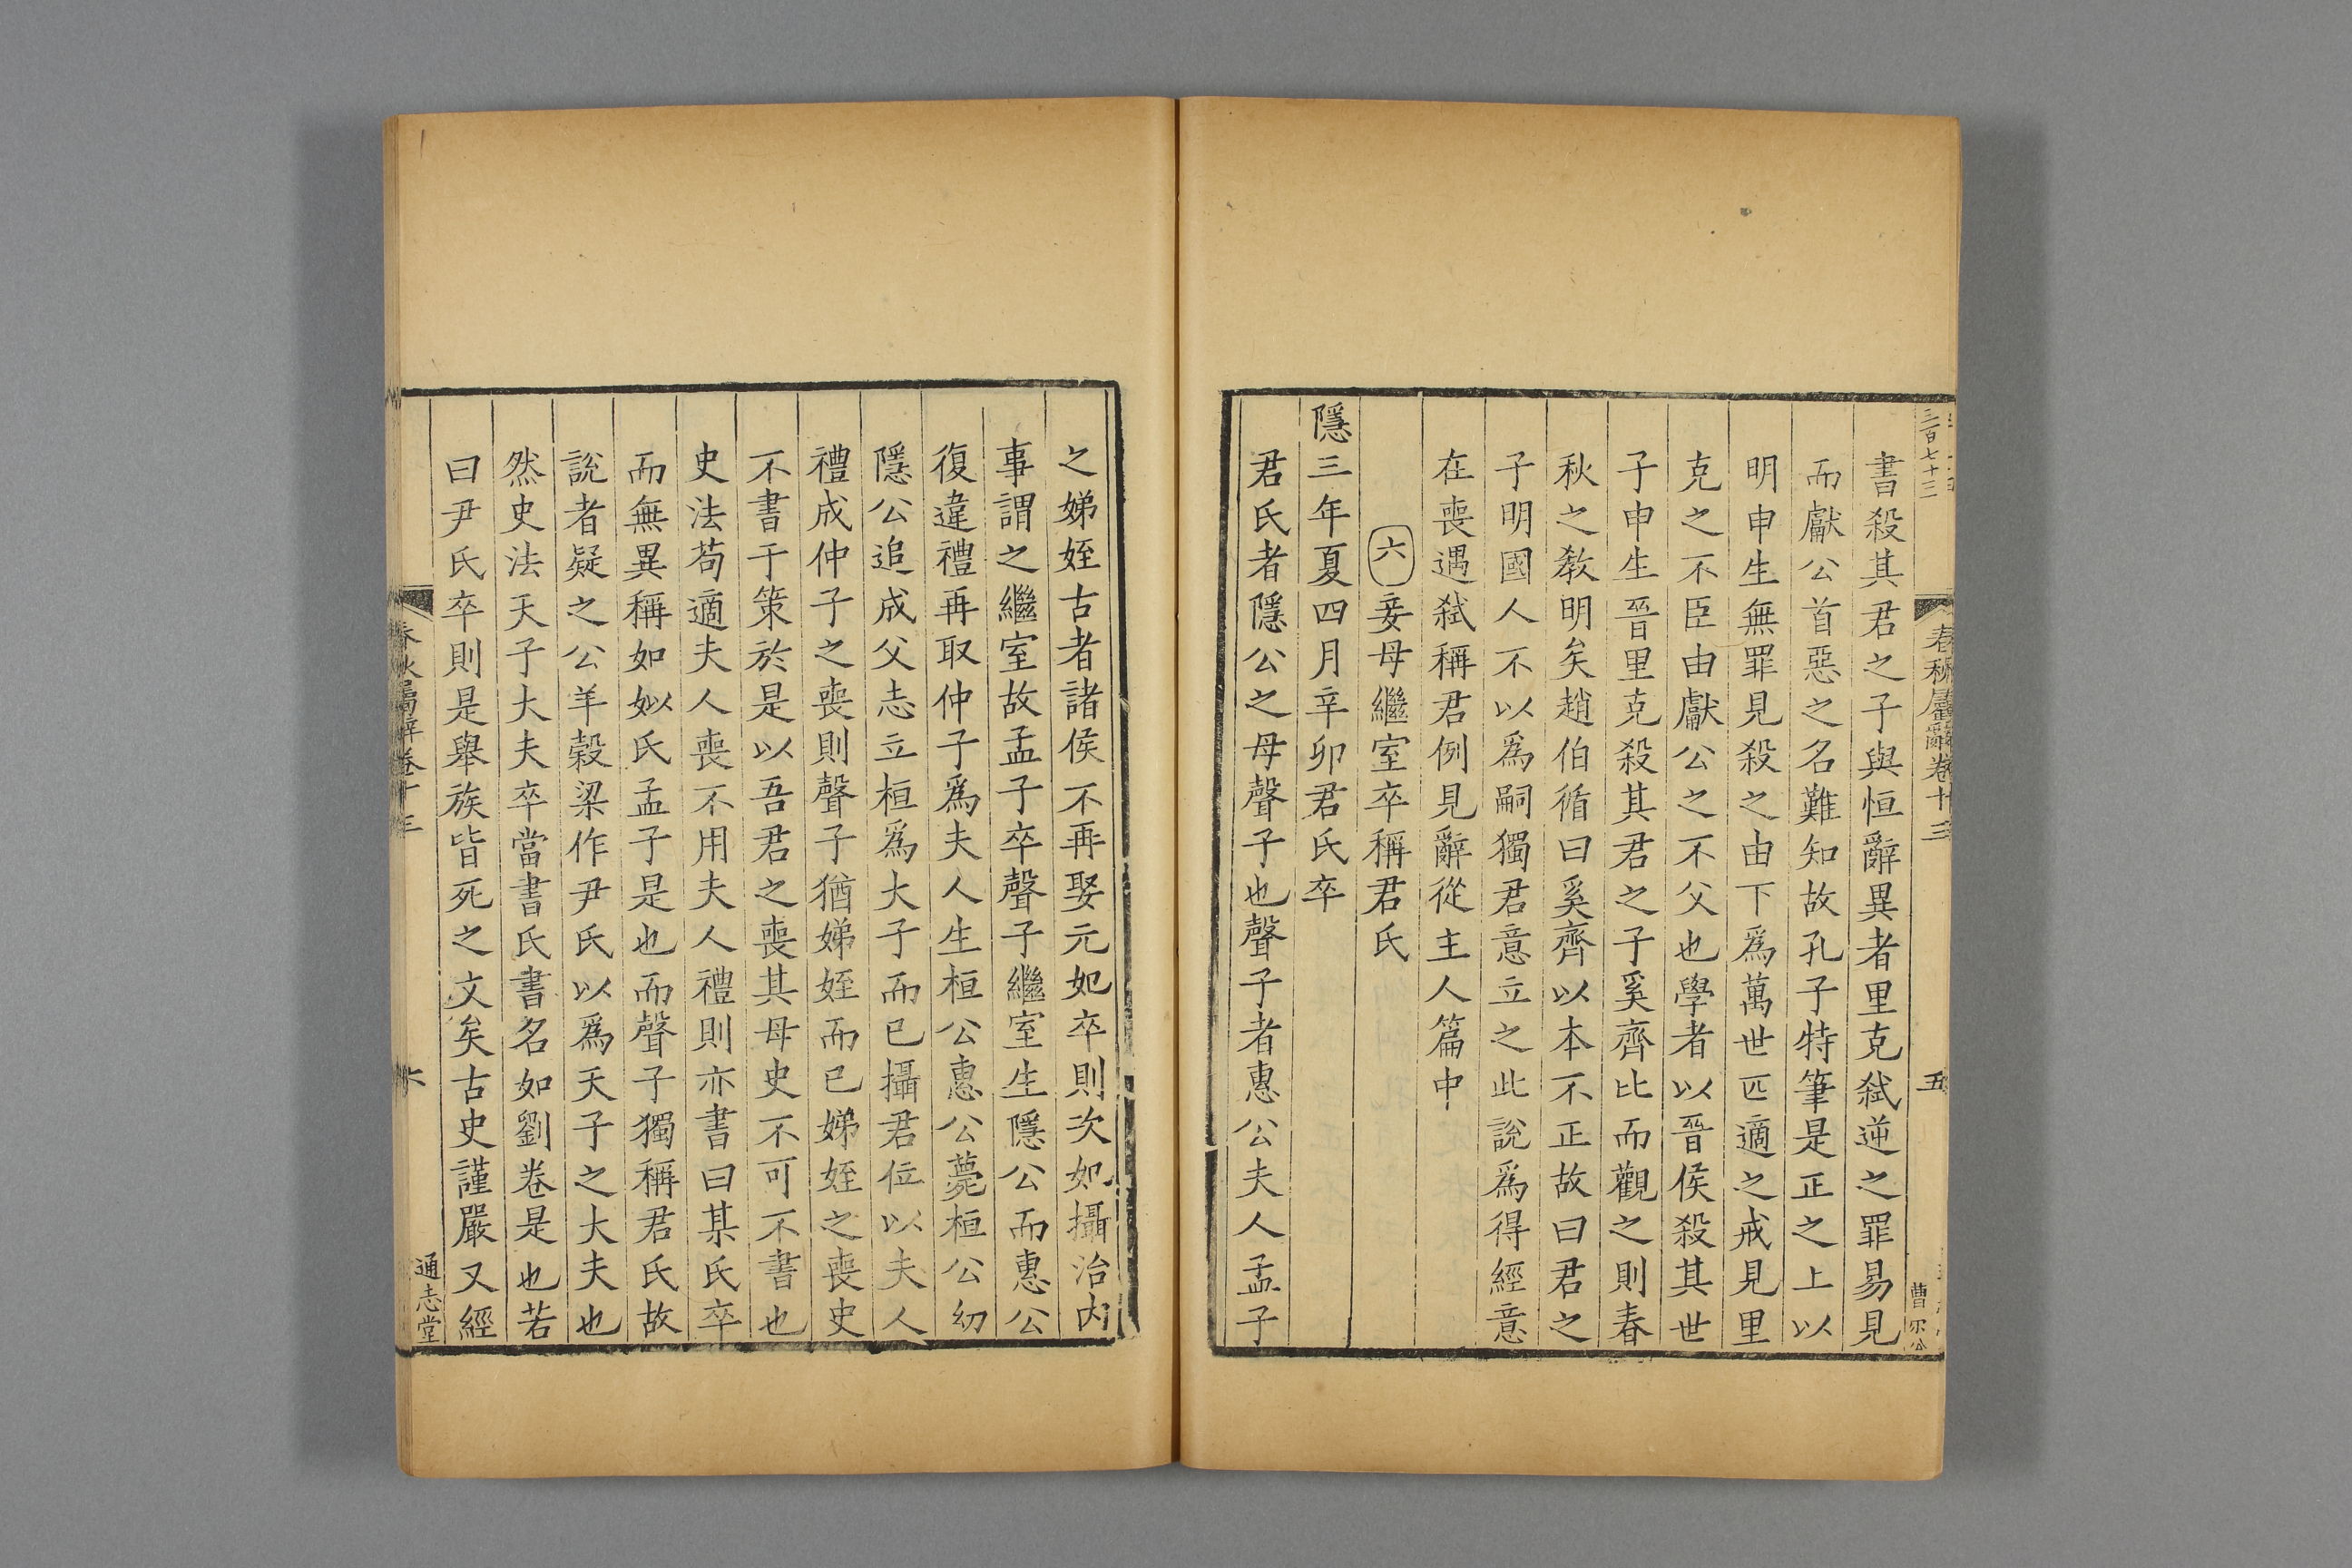 三百七十三
春秋屬辭卷十三
五
曹尔公
書殺其君之子與恒辭異者里克弑逆之罪易見
而獻公首惡之名難知故孔子特筆是正之上以
明申生無罪見殺之由下爲萬世匹適之戒見里
克之不臣由獻公之不父也學者以晉侯殺其世
子申生晉里克殺其君之子奚齊比而觀之則春
秋之教明矣趙伯循曰奚齊以本不正故曰君之
子明國人不以爲嗣獨君意立之此說爲得經意
在喪遇弑稱君例見辭從主人篇中
六妾母繼室卒稱君氏
隱三年夏四月辛卯君氏卒
君氏者隱公之母聲子也聲子者惠公夫人孟子
之娣姪古者諸侯不再娶元妃卒則次妃攝治內
事謂之繼室故孟子卒聲子繼室生隱公而惠公
復違禮再取仲子爲夫人生桓公惠公薨桓公幼
隱公追成父志立桓爲大子而已攝君位以夫人
禮成仲子之喪則聲子猶娣姪而已娣姪之喪史
不書于策於是以吾君之喪其母史不可不書也
史法苟適夫人喪不用夫人禮則亦書曰某氏卒
而無異稱如姒氏孟子是也而聲子獨稱君氏故
說者疑之公羊榖梁作尹氏以爲天子之大夫也
然史法天子大夫卒當書氏書名如劉卷是也若
曰尹氏卒則是舉族皆死之文矣古史謹嚴又經
春秋屬辭卷十三
六
通志堂